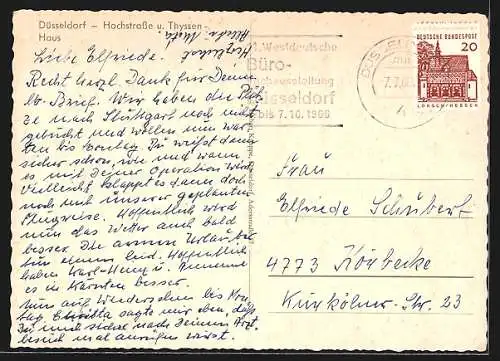 Düsseldorf – Hochstraße u. Thyssen-
Haus
Herzlichst
Liebe Elfriede.
Recht herzl. Dank für Deinen
lb. Brief. Wir haben die Plät
ze nach Stuttgart noch nicht
gebucht und wollen nun war
ten bis Montag. Du weißt dann
sicher schon, wie und wann
es mit Deiner Operation wird.
Vielleicht klappt es dann doch
noch mit unserer geplanten
Flugreise. Hoffentlich wird
nun das Wetter auch bald
besser. Die armen Urlauber
tun einem leid. Hoffentlich
haben Karl-Heinz u.
es in Kärnten besser.
Nun auf Wiedersehen bis Mon
tag. sagte mir eben, daß
Du mit sicher nach Deinem Arzt-
besuch mal anrufen wirst.
Westdeutsche
Büro-
ausstellung
Düsseldorf
bis 7.10.1966
DEUTSCHE BUNDESPOST
20
LORSCH/HESSEN
Frau
Elfriede Schubert
4773 Körbecke
Kurkölner-Str. 23